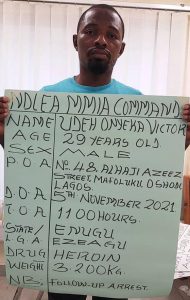 NDLEA MMIA COMMAND
NAME UDEH ONYEKA VICTOR
AGE 29 YEARS OLD.
SEX MALE
P.O.A NO. 48, ALHAJI AZEEZ
STREET, MAFOLUKU OSHODI
LAGOS.
D.O.A 5TH NOVEMBER 2021
T.O.A 1100 HOURS.
STATE/ ENUGU
LGA EZEAGU
DRUG HEROIN
WEIGHT 3.200KG.
NB: FOLLOW-UP ARREST.